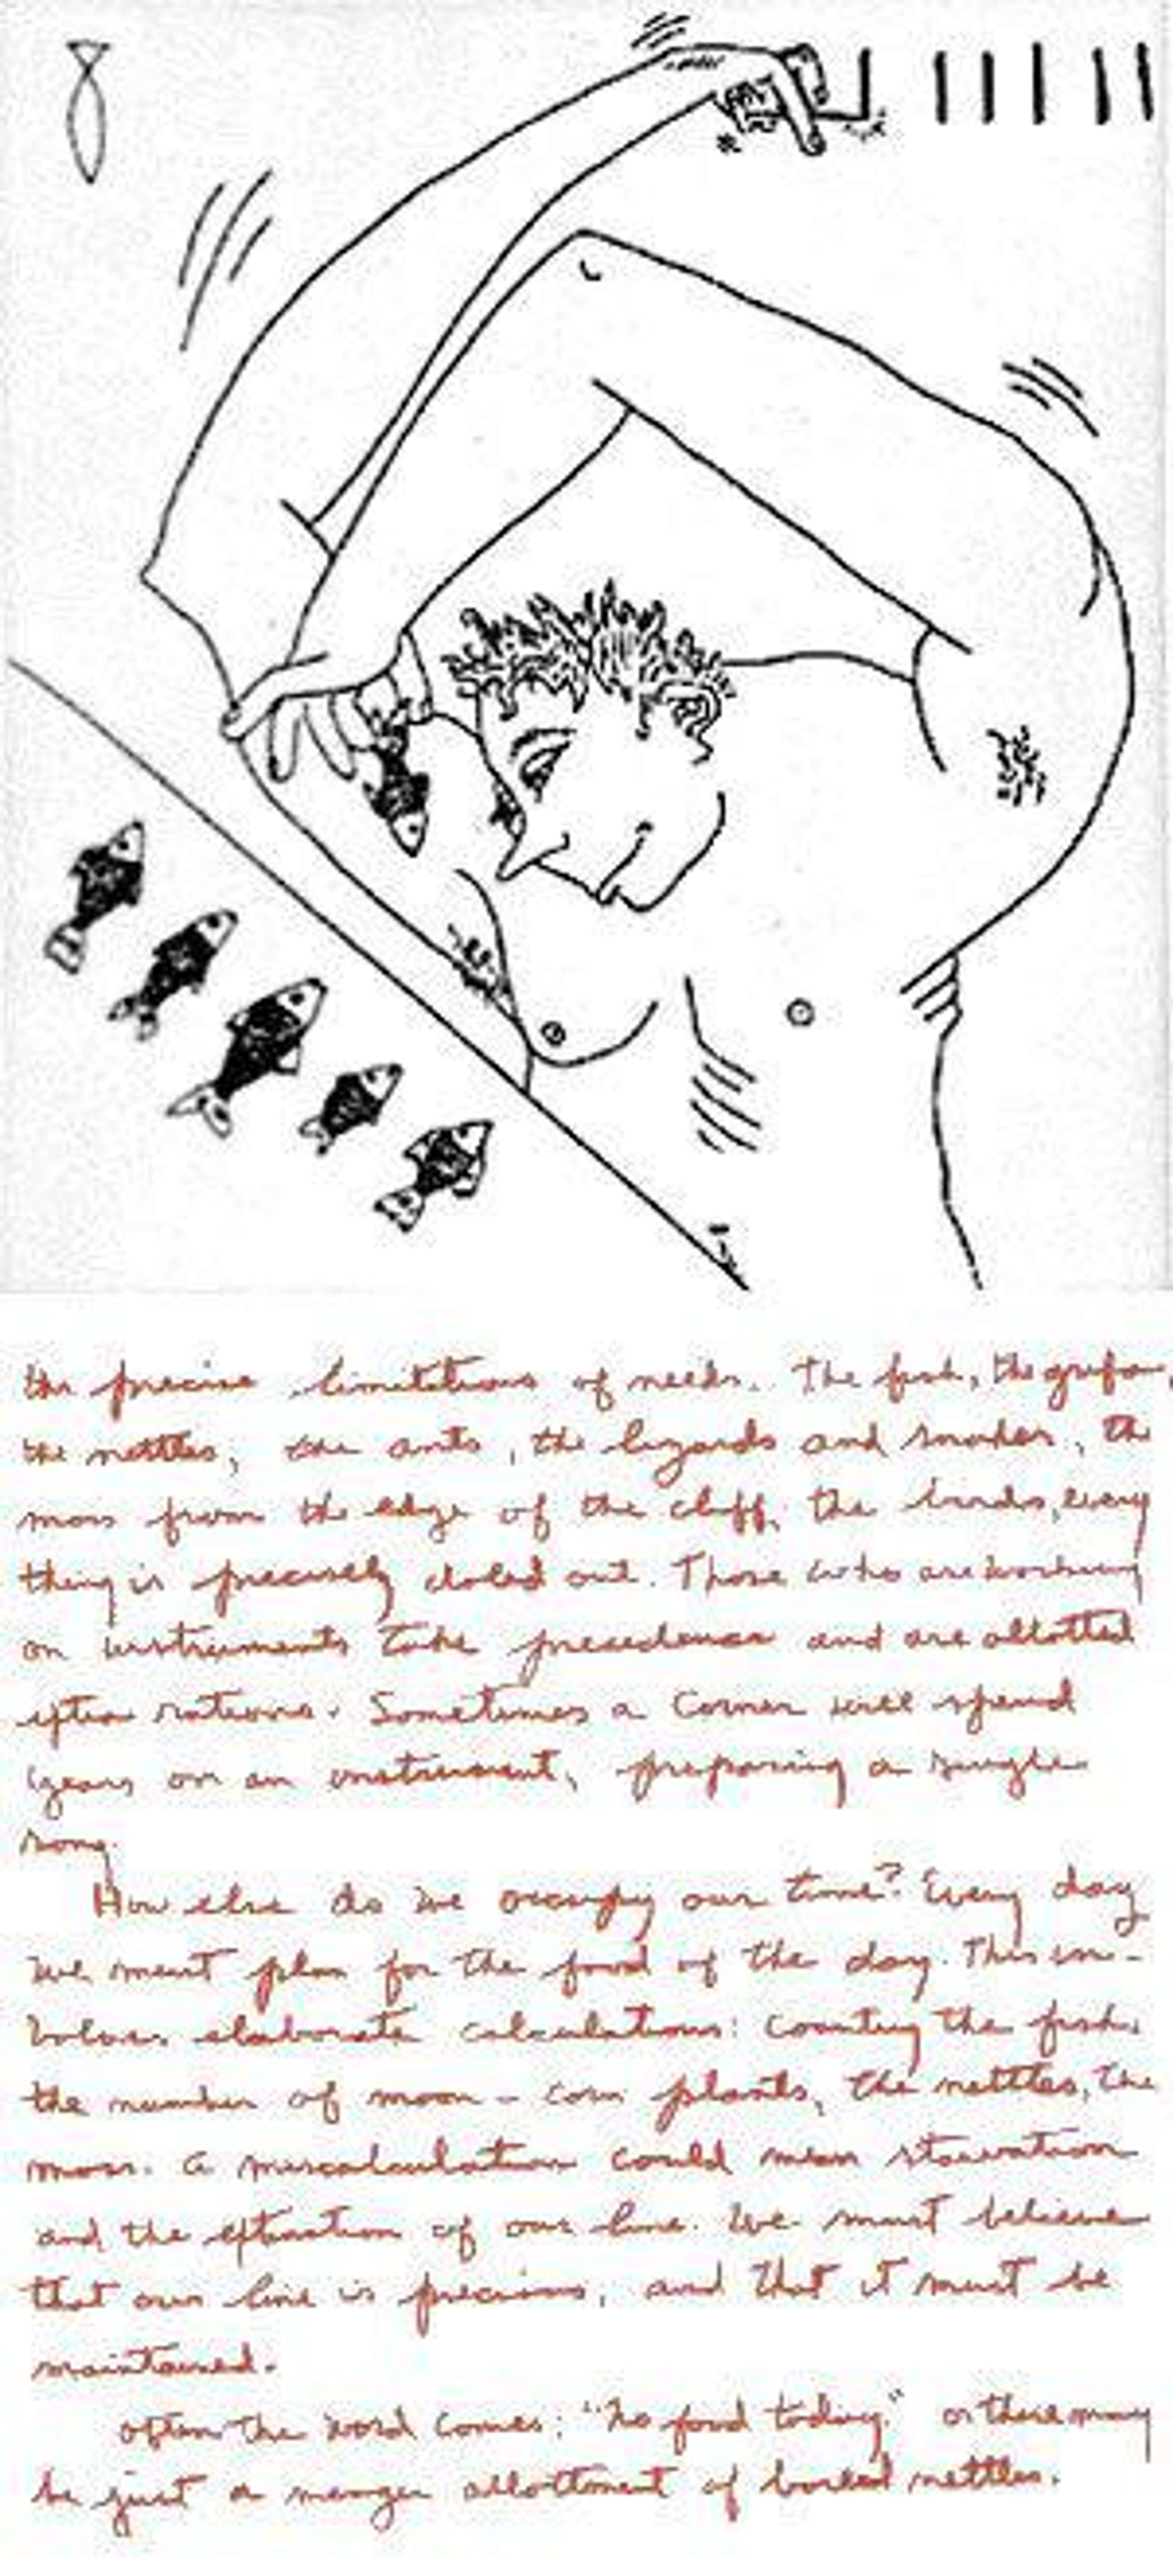 the precise limitations of needs. The fish, the
the nettles, the ants, the lizards and snakes, the
moss from the edge of the cliff, the birds, every
thing is precisely doled out. Those who are working
on instruments take precedence and are allotted
extra rations. Sometimes a Corner will spend
years on an instrument, preparing a single
song.
How else do we occupy our time? Every day
we must plan for the food of the day. This in-
volves elaborate calculations: counting the fish,
the number of moon-corn plants, the nettles, the
moss. A miscalculation could mean starvation
and the extinction of our line. We must believe
that our line is precious, and that it must be
maintained.
Often the word comes: "No food today." or there may
be just a meager allottment of boiled nettles.